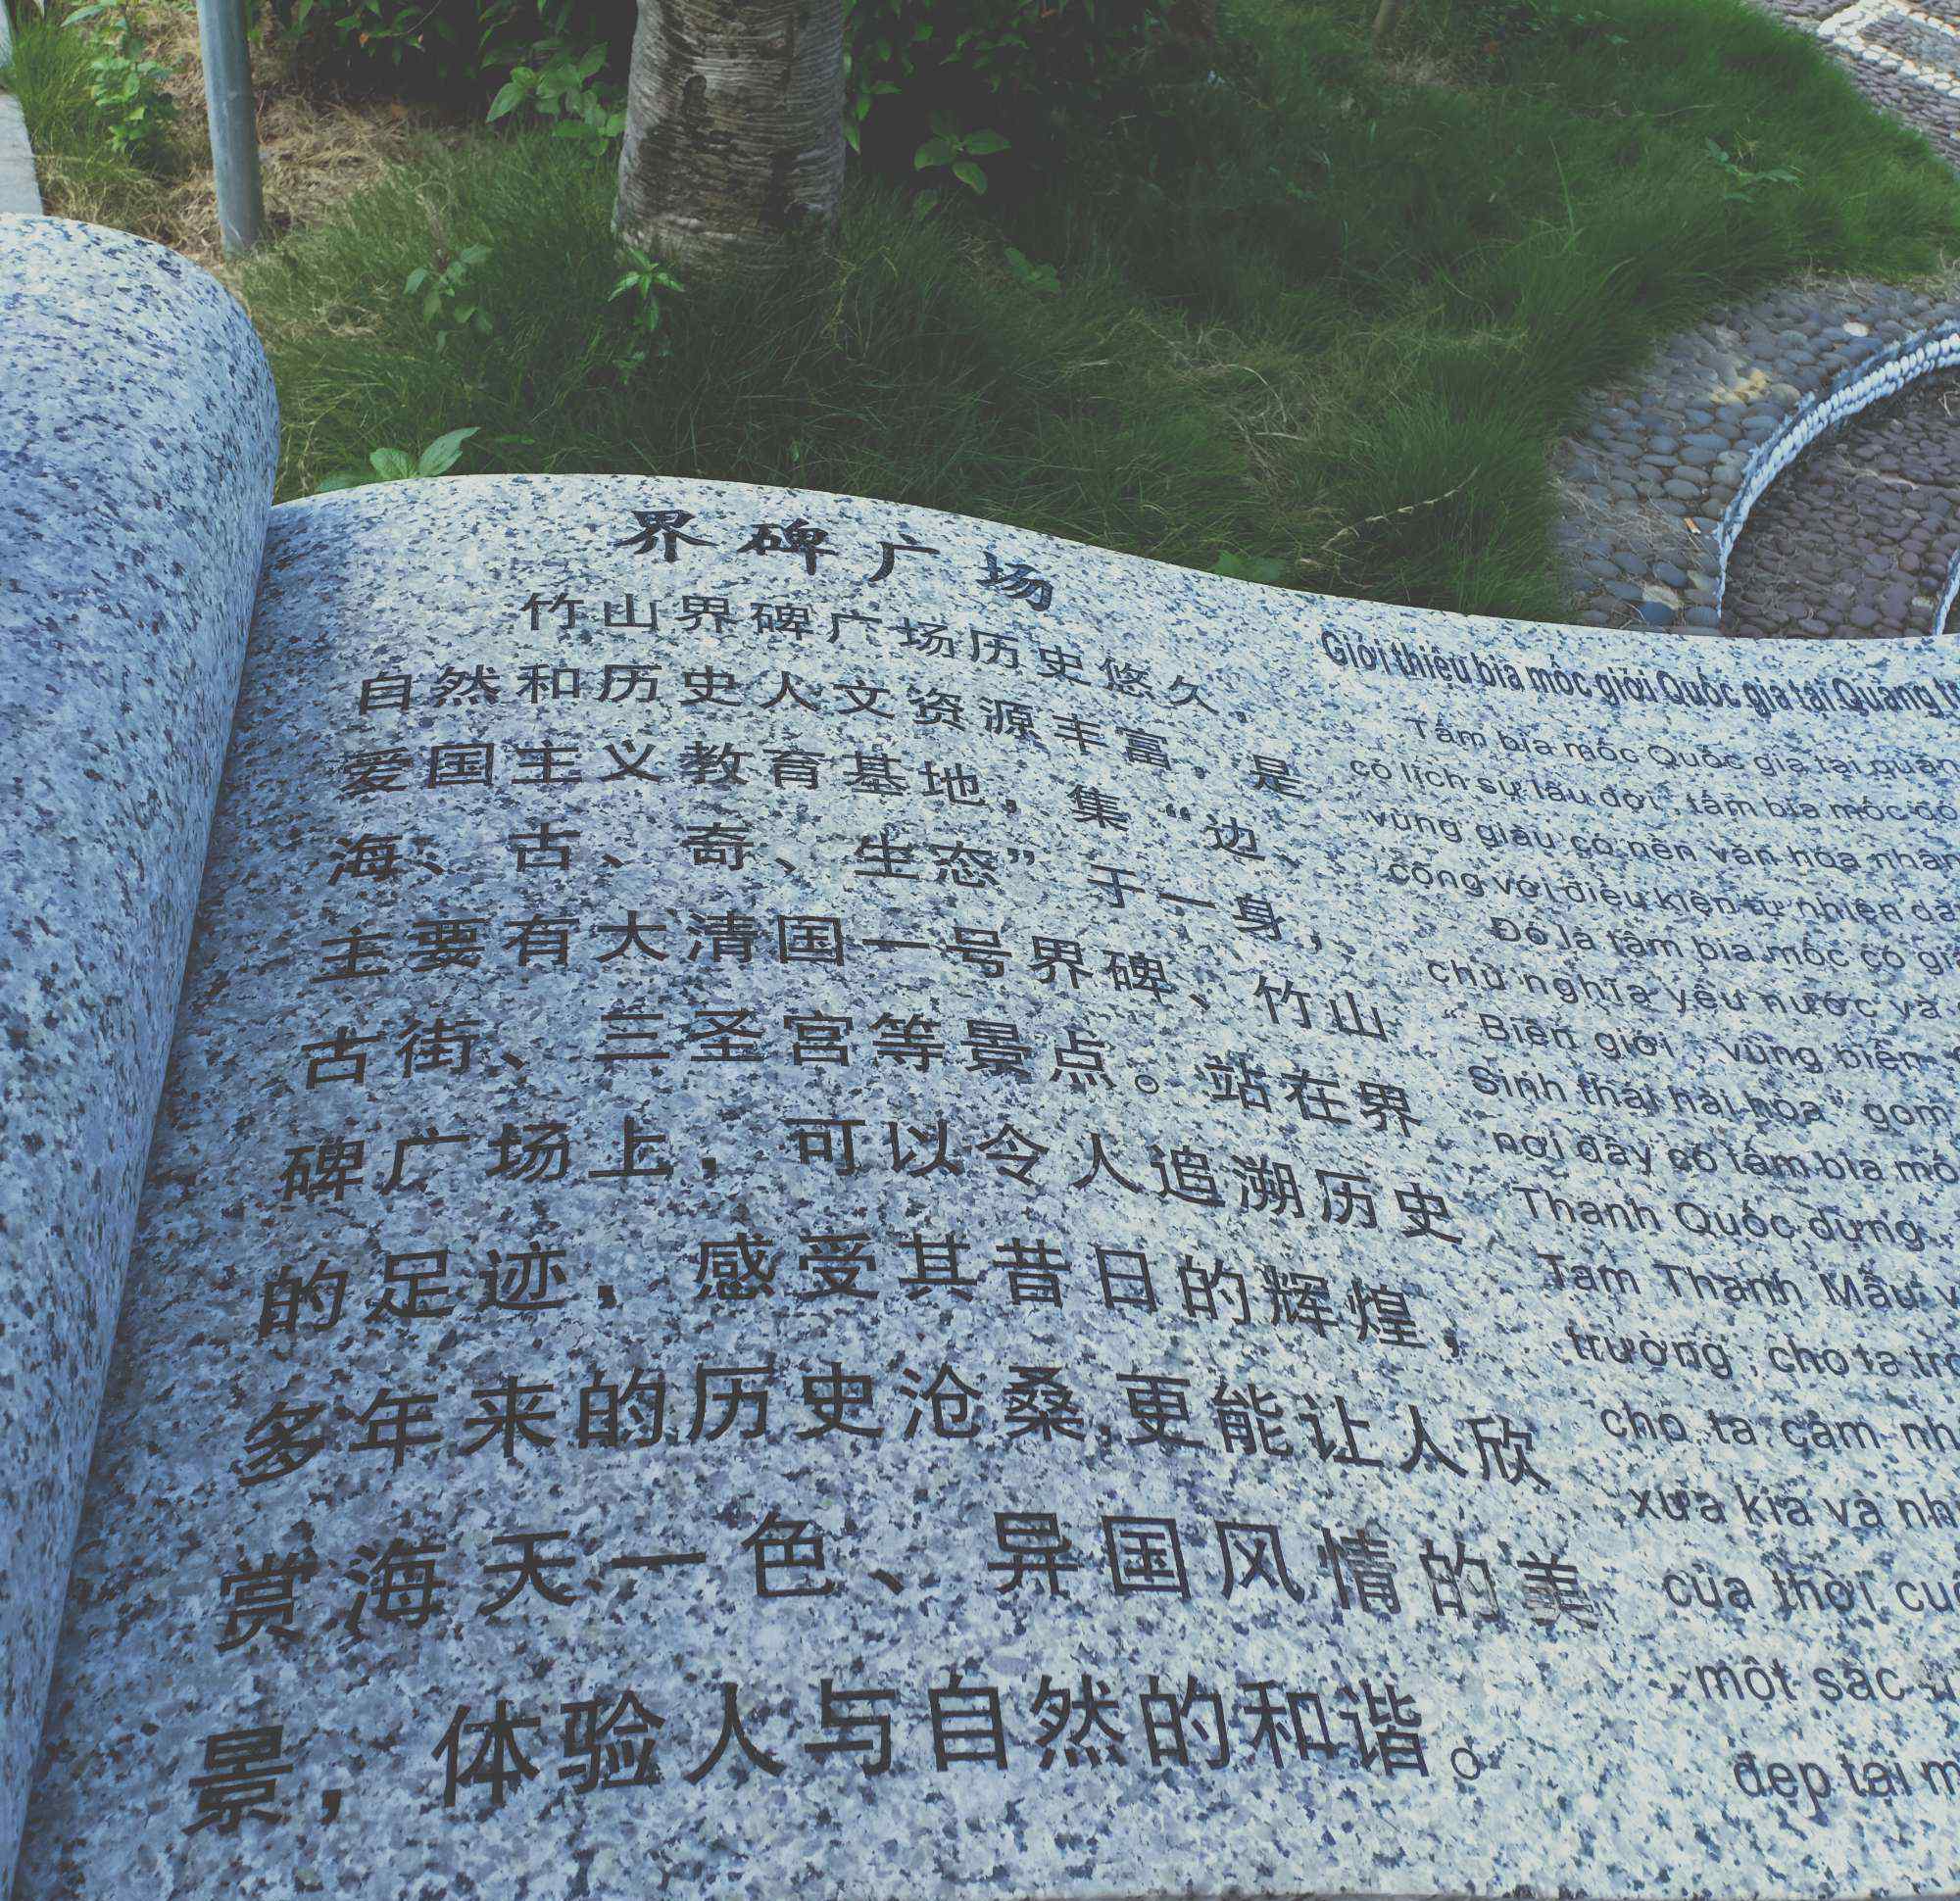 界碑广场
竹山界碑广场历史悠久，
自然和历史人文资源丰富，是
爱国主义教育基地，集“边、
海、古、奇、生态”于一身，
主要有大清国一号界碑、竹山
古街、三圣宫等景点。站在界
碑广场上，可以令人追溯历史
的足迹，感受其昔日的辉煌，
多年来的历史沧桑,更能让人欣
赏海天一色、异国风情的美
景，体验人与自然的和谐。
Giới thiệu bia mốc giới Quốc gia tại Quảng
Tấm bia mốc Quốc gia tại quản
có lịch sử lâu đời , tấm bia mốc
vùng giàu có nền văn hóa nhân
cộng với điều kiện tự nhiên
Đó là tấm bia mốc có
chủ nghĩa yêu nước và
“ Biên giới , vùng biển
Sinh thái hài hòa ” gom
nơi đây có tấm bia
Thanh Quốc dựng
Tam Thanh Mẫu
trường , cho ta
cho ta cảm
xưa kia và
của thời
một sắc
đẹp tại